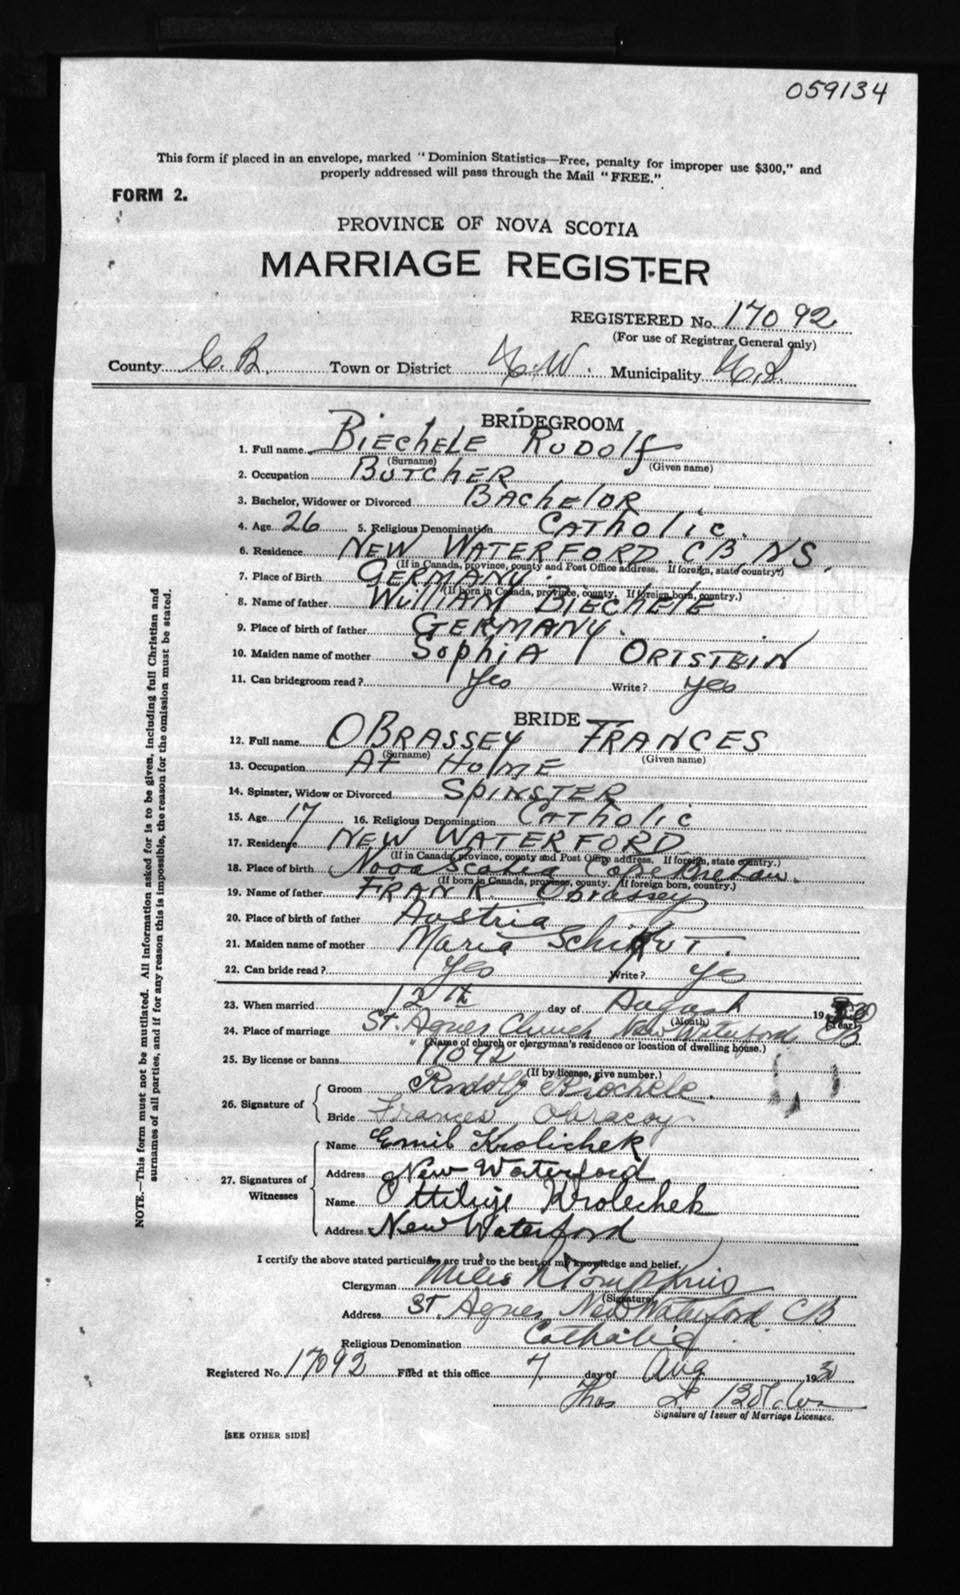 059134
This form if placed in an envelope, marked "Dominion Statistics—Free, penalty for improper use $300," and
properly addressed will pass through the Mail "FREE."
FORM 2.
PROVINCE OF NOVA SCOTIA
MARRIAGE REGISTER
REGISTERED No. 17092
(For use of Registrar General only)
County C.B. Town or District N.W. Municipality
BRIDEGROOM
1. Full name BIECHELE RUDOLF
(Surname) (Given name)
2. Occupation BUTCHER
3. Bachelor, Widower or Divorced BACHELOR
4. Age 26 5. Religious Denomination CATHOLIC.
6. Residence NEW WATERFORD. CB, NS.
(If in Canada, province, county and Post Office address. If foreign, state country)
7. Place of Birth GERMANY.
(If born in Canada, province, county. If foreign born, country.)
8. Name of father WILLIAM BIECHELE
9. Place of birth of father GERMANY.
10. Maiden name of mother SOPHIA ORTSTEIN
11. Can bridegroom read? Yes Write? yes
BRIDE
12. Full name OBRASSEY FRANCES
(Surname) (Given name)
13. Occupation AT HOME
14. Spinster, Widow or Divorced SPINSTER
15. Age 17 16. Religious Denomination CATHOLIC
17. Residence NEW WATERFORD
(If in Canada, province, county and Post Office address. If foreign, state country.)
18. Place of birth Nova Scotia Cape Bretaw.
(If born in Canada, province, county. If foreign born, country.)
19. Name of father FRANK Obrassey
20. Place of birth of father Austria
21. Maiden name of mother Maria
22. Can bride read? Yes Write? yes
23. When married 12th day of August 1930
(Month) (Year)
24. Place of marriage St. Agnes Church New Waterford CB
(Name of church or clergyman's residence or location of dwelling house.)
25. By license or banns "17092
(If by license, give number.)
26. Signature of Groom Rudolf Biechele.
Bride Frances Obracoy
27. Signatures of Witnesses Name Emil Krolichek
Address New Waterford
Name Ottilije Krolechek
Address New Waterford
I certify the above stated particulars are true to the best of my knowledge and belief.
Clergyman Miles N Tompkins
(Signature)
Address St. Agnes New Waterford. CB
Religious Denomination Catholic
Registered No. 17092 Filed at this office 7 day of Aug 1930
Thos
Signature of Issuer of Marriage Licenses.
[SEE OTHER SIDE]
NOTE.—This form must not be mutilated. All information asked for is to be given, including full Christian and
surnames of all parties, and if for any reason this is impossible, the reason for the omission must be stated.